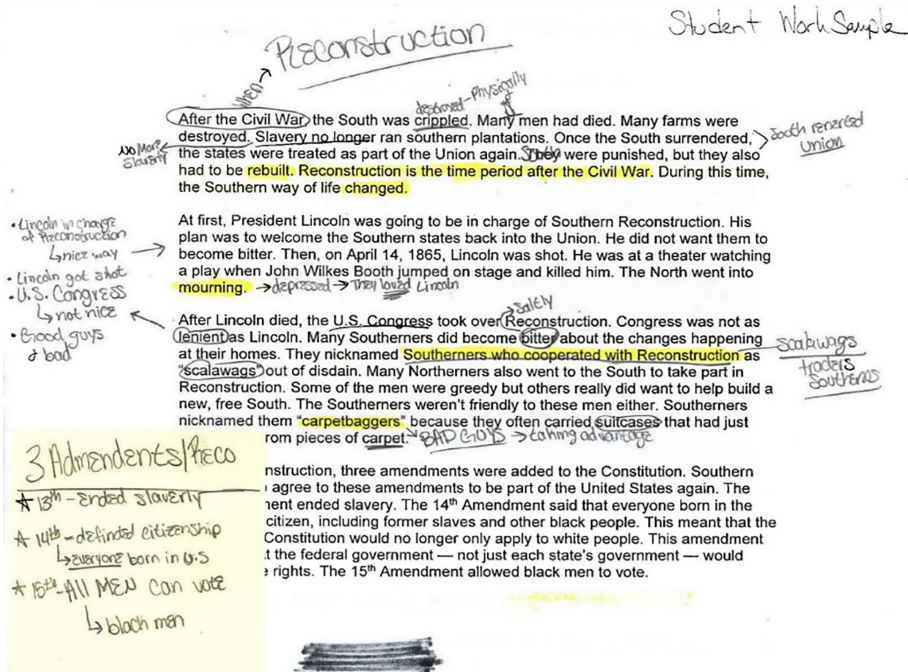 Student Work Sample
Reconstruction
when
destroyed - Physically
After the Civil War, the South was crippled. Many men had died. Many farms were
destroyed. Slavery no longer ran southern plantations. Once the South surrendered,
the states were treated as part of the Union again. They were punished, but they also
had to be rebuilt. Reconstruction is the time period after the Civil War. During this time,
the Southern way of life changed.
NO More
Slaverly
South
Union
At first, President Lincoln was going to be in charge of Southern Reconstruction. His
plan was to welcome the Southern states back into the Union. He did not want them to
become bitter. Then, on April 14, 1865, Lincoln was shot. He was at a theater watching
a play when John Wilkes Booth jumped on stage and killed him. The North went into
mourning. → depressed → They loved Lincoln
• Lincoln in charge
of Reconstruction
↳ nice way
• Lincoln got shot
• U.S. Congress
↳ not nice
• Good guys
& bad
Salty
After Lincoln died, the U.S. Congress took over Reconstruction. Congress was not as
lenient as Lincoln. Many Southerners did become bitter about the changes happening
at their homes. They nicknamed Southerners who cooperated with Reconstruction as
"scalawags" out of disdain. Many Northerners also went to the South to take part in
Reconstruction. Some of the men were greedy but others really did want to help build a
new, free South. The Southerners weren't friendly to these men either. Southerners
nicknamed them "carpetbaggers" because they often carried suitcases that had just
rom pieces of carpet. BAD GUYS → taking advantage
scalawags
traders
Southerns
nstruction, three amendments were added to the Constitution. Southern
agree to these amendments to be part of the United States again. The
ent ended slavery. The 14th Amendment said that everyone born in the
citizen, including former slaves and other black people. This meant that the
Constitution would no longer only apply to white people. This amendment
t the federal government — not just each state's government — would
e rights. The 15th Amendment allowed black men to vote.
3 Admendents/Reco
★ 13th - Ended slaverly
★ 14th - definded citizenship
↳ everyone born in U.S
★ 15th - All MEN can vote
↳ black men